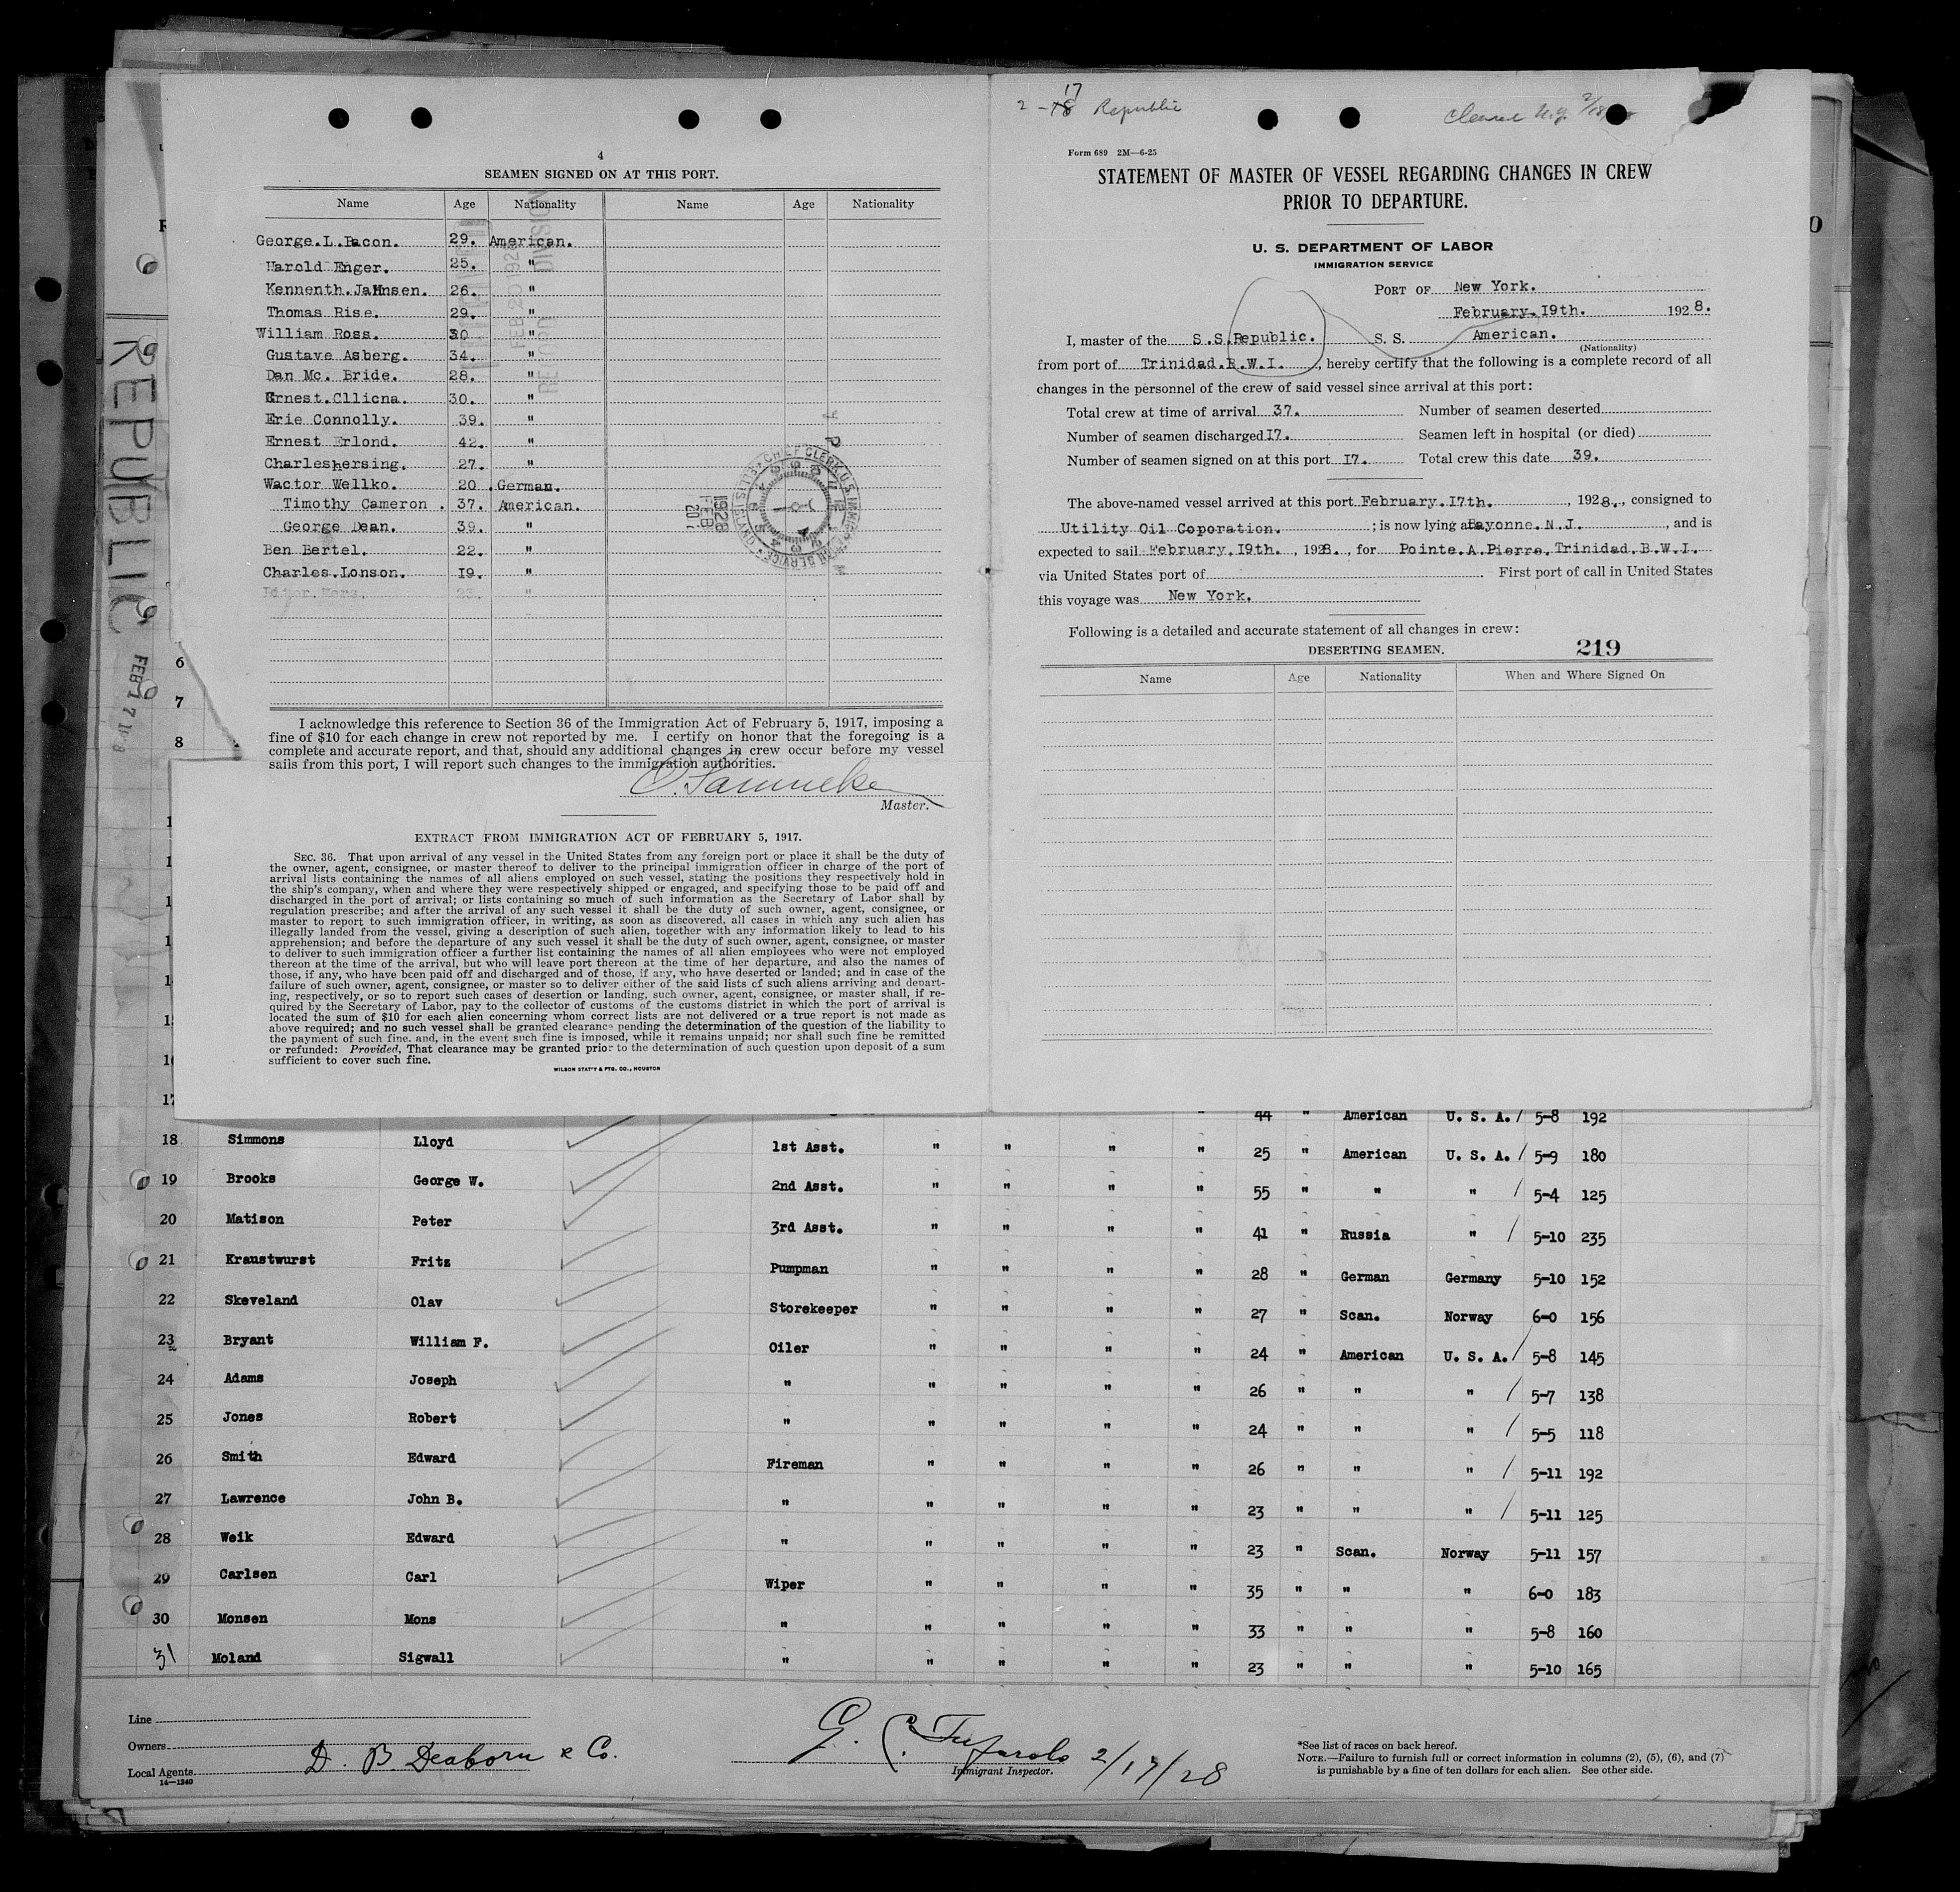 4
SEAMEN SIGNED ON AT THIS PORT.
Name Age Nationality Name Age Nationality
George.L.Bacon. 29. American.
Harold Enger. 25. "
Kennenth.JaHnsen. 26. "
Thomas Rise. 29. "
William Ross. 30 "
Gustave Asberg. 34. "
Dan Mc. Bride. 28. "
Ernest.Cllicna. 30. "
Erie Connolly. 39. "
Ernest Erlond. 42. "
Charleshersing. 27. "
Wactor Wellko. 20 .German.
Timothy Cameron . 37. American.
George Dean. 39. "
Ben Bertel. 22. "
Charles.Lonson. I9. "
23. "
I acknowledge this reference to Section 36 of the Immigration Act of February 5, 1917, imposing a
fine of $10 for each change in crew not reported by me. I certify on honor that the foregoing is a
complete and accurate report, and that, should any additional changes in crew occur before my vessel
sails from this port, I will report such changes to the immigration authorities.
Master.
EXTRACT FROM IMMIGRATION ACT OF FEBRUARY 5, 1917.
SEC. 36. That upon arrival of any vessel in the United States from any foreign port or place it shall be the duty of
the owner, agent, consignee, or master thereof to deliver to the principal immigration officer in charge of the port of
arrival lists containing the names of all aliens employed on such vessel, stating the positions they respectively hold in
the ship's company, when and where they were respectively shipped or engaged, and specifying those to be paid off and
discharged in the port of arrival; or lists containing so much of such information as the Secretary of Labor shall by
regulation prescribe; and after the arrival of any such vessel it shall be the duty of such owner, agent, consignee, or
master to report to such immigration officer, in writing, as soon as discovered, all cases in which any such alien has
illegally landed from the vessel, giving a description of such alien, together with any information likely to lead to his
apprehension; and before the departure of any such vessel it shall be the duty of such owner, agent, consignee, or master
to deliver to such immigration officer a further list containing the names of all alien employees who were not employed
thereon at the time of the arrival, but who will leave port thereon at the time of her departure, and also the names of
those, if any, who have been paid off and discharged and of those, if any, who have deserted or landed; and in case of the
failure of such owner, agent, consignee, or master so to deliver either of the said lists of such aliens arriving and depart-
ing, respectively, or so to report such cases of desertion or landing, such owner, agent, consignee, or master shall, if re-
quired by the Secretary of Labor, pay to the collector of customs of the customs district in which the port of arrival is
located the sum of $10 for each alien concerning whom correct lists are not delivered or a true report is not made as
above required; and no such vessel shall be granted clearance pending the determination of the question of the liability to
the payment of such fine. and, in the event such fine is imposed, while it remains unpaid; nor shall such fine be remitted
or refunded: Provided, That clearance may be granted prior to the determination of such question upon deposit of a sum
sufficient to cover such fine.
WILSON STAT'Y & PTG. CO., HOUSTON
2-17 Republic
Cleared N.Y. 2/18
Form 689 2M—6-25
STATEMENT OF MASTER OF VESSEL REGARDING CHANGES IN CREW
PRIOR TO DEPARTURE.
U. S. DEPARTMENT OF LABOR
IMMIGRATION SERVICE
PORT OF New York.
February.I9th. 1928.
I, master of the S.S.Republic. S. S. American.
(Nationality)
from port of Trinidad.B.W.I. , hereby certify that the following is a complete record of all
changes in the personnel of the crew of said vessel since arrival at this port:
Total crew at time of arrival 37. Number of seamen deserted
Number of seamen discharged I7. Seamen left in hospital (or died)
Number of seamen signed on at this port I7. Total crew this date 39.
The above-named vessel arrived at this port February.I7th. , 1928., consigned to
Utility Oil Coporation. ; is now lying at Bayonne.N.J. , and is
expected to sail February.I9th. , 1928. , for Pointe.A.Pierre.Trinidad.B.W.I.
via United States port of First port of call in United States
this voyage was New York.
Following is a detailed and accurate statement of all changes in crew:
DESERTING SEAMEN. 219
Name Age Nationality When and Where Signed On
REPUBLIC FEB 17 1928
CHIEF CLERK U.S. IMMIGRATION SERVICE ELLIS ISLAND
1928 FEB 20
FEB 20 1928 RECORD DIVISION
6
7
8
17 44 " American U. S. A. / 5-8 192
18 Simmons Lloyd 1st Asst. " " " " 25 " American U. S. A. / 5-9 180
19 Brooks George W. 2nd Asst. " " " " 55 " " " / 5-4 125
20 Matison Peter 3rd Asst. " " " " 41 " Russia " / 5-10 235
21 Kranstwurst Fritz Pumpman " " " " 28 " German Germany 5-10 152
22 Skeveland Olav Storekeeper " " " " 27 " Scan. Norway 6-0 156
23 Bryant William F. Oiler " " " " 24 " American U. S. A. / 5-8 145
24 Adams Joseph " " " " " 26 " " " / 5-7 138
25 Jones Robert " " " " " 24 " " " / 5-5 118
26 Smith Edward Fireman " " " " 26 " " " / 5-11 192
27 Lawrence John B. " " " " " 23 " " " / 5-11 125
28 Weik Edward " " " " " 23 " Scan. Norway 5-11 157
29 Carlsen Carl Wiper " " " " 35 " " " 6-0 183
30 Monsen Mons " " " " " 33 " " " 5-8 160
31 Moland Sigwall " " " " " 23 " " " 5-10 165
Line
Owners
Local Agents D. B. Deaborn & Co.
14—1240
G. C. 2/17/28
Immigrant Inspector.
*See list of races on back hereof.
NOTE.—Failure to furnish full or correct information in columns (2), (5), (6), and (7)
is punishable by a fine of ten dollars for each alien. See other side.